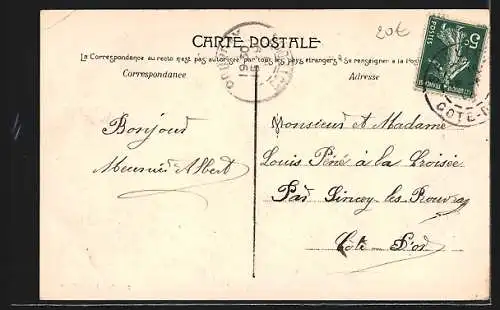 20€
CARTE POSTALE
La Correspondance au recto n'est pas autorisée par tous les pays étrangers (Se renseigner à la Poste)
Correspondance
Adresse
5c
POSTES
COTE-D
Bonjour
Meunier Albert
Monsieur et Madame
Louis Péné à la Croisée
Par Sincey les Rouvray
Côte d'or